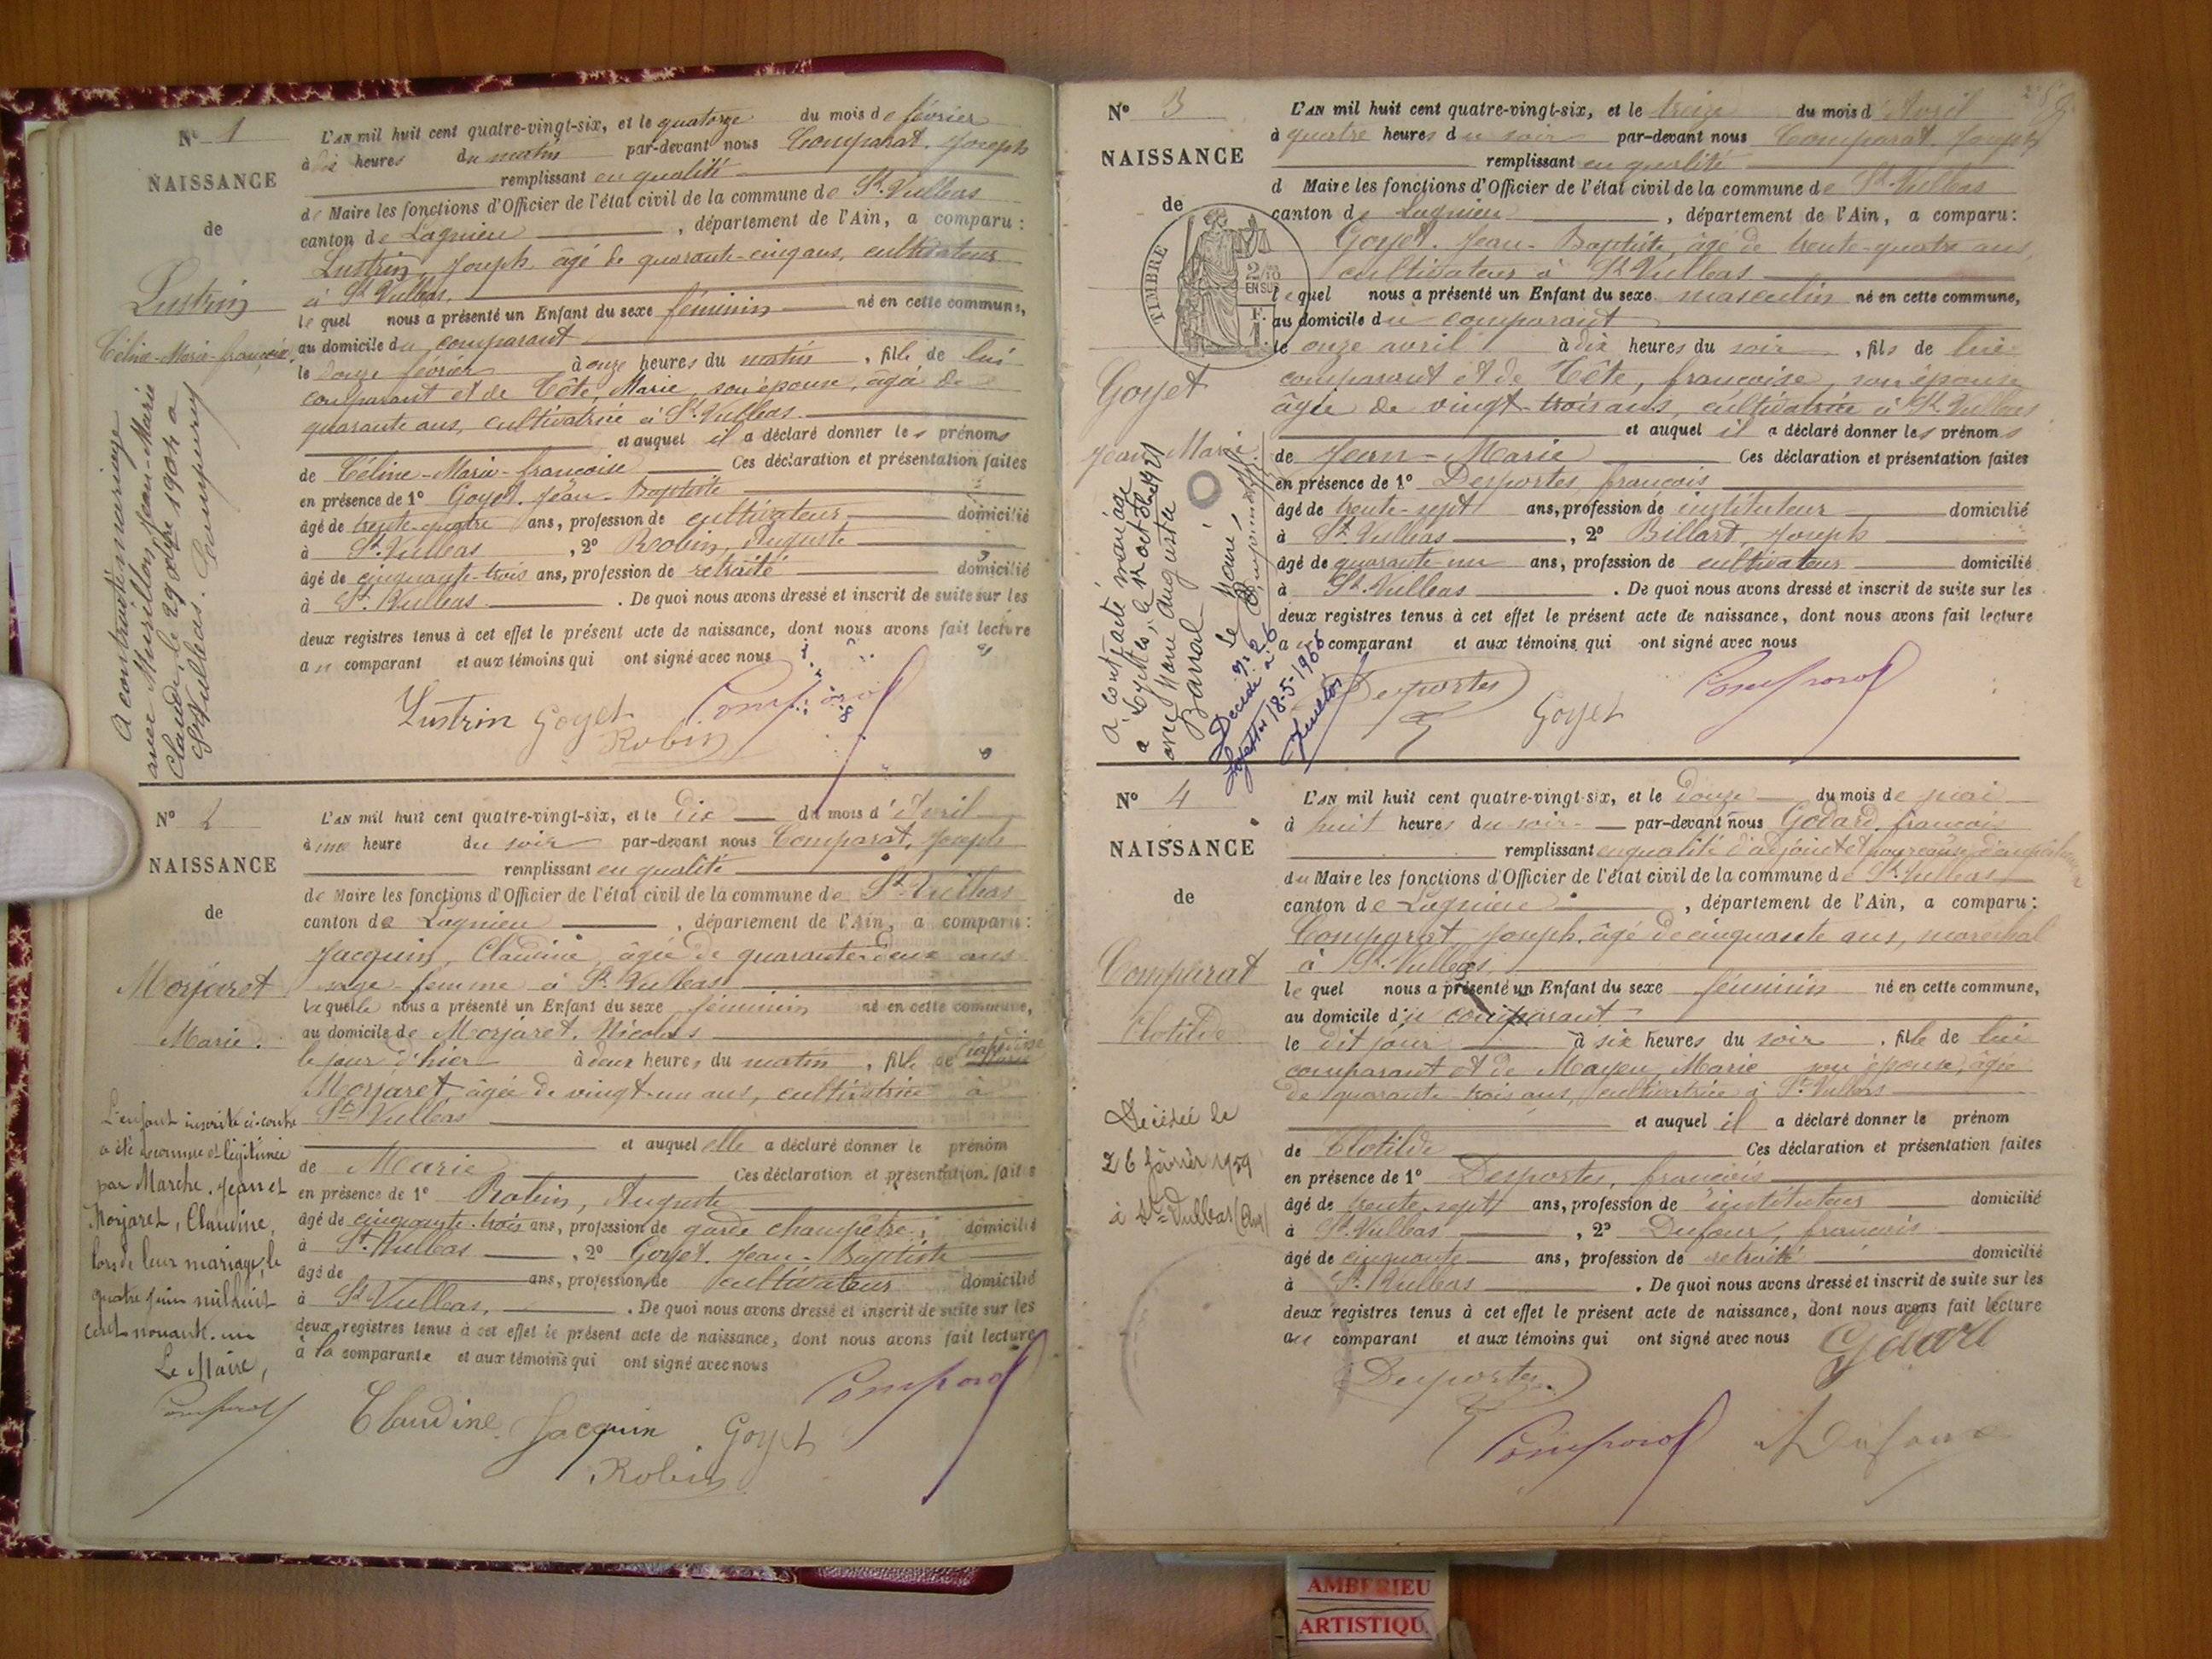 N° 1
NAISSANCE
de
Lustrin
Céline-Marie-françoise.
A contracté mariage
avec Murillon, Jean-Marie
Claude, le 29 octbre 1904 à
St Vulbas.
L'AN mil huit cent quatre-vingt-six, et le quatorze du mois de février
à dix heures du matin par-devant nous Comparat, Joseph
remplissant en qualité
de Maire les fonctions d'Officier de l'état civil de la commune de St. Vulbas
canton de Lagnieu , département de l'Ain, a comparu :
Lustrin, Joseph, âgé de quarante-cinq ans, cultivateur
à St. Vulbas.
le quel nous a présenté un Enfant du sexe féminin né en cette commune,
au domicile du comparant
le douze février à onze heures du matin , fille de lui
comparant et de Tête, Marie, son épouse, âgée de
quarante ans, cultivatrice à St. Vulbas.
et auquel il a déclaré donner les prénoms
de Céline-Marie-françoise Ces déclaration et présentation faites
en présence de 1° Goyet, Jean-Baptiste
âgé de trente-quatre ans, profession de cultivateur domicilié
à St. Vulbas , 2° Robin, Auguste
âgé de cinquante-trois ans, profession de retraité domicilié
à St. Vulbas . De quoi nous avons dressé et inscrit de suite sur les
deux registres tenus à cet effet le présent acte de naissance, dont nous avons fait lecture
au comparant et aux témoins qui ont signé avec nous
Lustrin Goyet Comparat
Robin
N° 2
NAISSANCE
de
Morjaret
Marie.
L'enfant inscrite ci-contre
a été reconnue et légitimée
par Marche, Jean et
Morjaret, Claudine,
lors de leur mariage, le
quatre juin mil huit
cent nonante-un
Le Maire,
Comparat
L'AN mil huit cent quatre-vingt-six, et le dix du mois d'Avril
à une heure du soir par-devant nous Comparat, Joseph
remplissant en qualité
de Maire les fonctions d'Officier de l'état civil de la commune de St. Vulbas
canton de Lagnieu , département de l'Ain, a comparu :
Jacquin, Claudine, âgée de quarante-deux ans
sage-femme à St. Vulbas
laquelle nous a présenté un Enfant du sexe féminin né en cette commune,
au domicile de Morjaret, Nicolas
le jour d'hier à deux heures du matin , fille de Claudine
Morjaret, âgée de vingt-un ans, cultivatrice à
St. Vulbas
et auquel elle a déclaré donner le prénom
de Marie Ces déclaration et présentation faites
en présence de 1° Robin, Auguste
âgé de cinquante-trois ans, profession de garde champêtre, domicilié
à St. Vulbas , 2° Goyet, Jean-Baptiste
âgé de ans, profession de cultivateur domicilié
à St. Vulbas. . De quoi nous avons dressé et inscrit de suite sur les
deux registres tenus à cet effet le présent acte de naissance, dont nous avons fait lecture
à la comparante et aux témoins qui ont signé avec nous
Comparat
Claudine Jacquin Goyet
Robin
N° 3
NAISSANCE
de
TIMBRE
2/10
EN SUS
Goyet
Jean Marie
a contracté mariage
à Loyettes, le 1er octobre 1921
avec Marie Augusta
Barral
Le Maire,
Décédé à
Loyettes 18-5-1956
L'AN mil huit cent quatre-vingt-six, et le treize du mois d'Avril
à quatre heures du soir par-devant nous Comparat, Joseph
remplissant en qualité
d Maire les fonctions d'Officier de l'état civil de la commune de St. Vulbas
canton de Lagnieu , département de l'Ain, a comparu :
Goyet, Jean-Baptiste, âgé de trente-quatre ans,
cultivateur à St. Vulbas
le quel nous a présenté un Enfant du sexe masculin né en cette commune,
au domicile du comparant
le onze avril à dix heures du soir , fils de lui
comparant et de Tête, françoise, son épouse
âgée de vingt-trois ans, cultivatrice à St. Vulbas
et auquel il a déclaré donner les prénoms
de Jean-Marie Ces déclaration et présentation faites
en présence de 1° Desportes, françois
âgé de trente-sept ans, profession de instituteur domicilié
à St. Vulbas , 2° Billard, Joseph
âgé de quarante-un ans, profession de cultivateur domicilié
à St. Vulbas . De quoi nous avons dressé et inscrit de suite sur les
deux registres tenus à cet effet le présent acte de naissance, dont nous avons fait lecture
au comparant et aux témoins qui ont signé avec nous
Desportes Goyet Comparat
N° 4
NAISSANCE
de
Comparat
Clotilde
Décédée le
26 février 1959
à St Vulbas (Ain)
L'AN mil huit cent quatre-vingt-six, et le douze du mois de mai
à huit heures du soir par-devant nous Godard, françois
remplissant en qualité d'adjoint et pour cause d'empêchement
du Maire les fonctions d'Officier de l'état civil de la commune de St. Vulbas
canton de Lagnieu , département de l'Ain, a comparu :
Comparat, Joseph, âgé de cinquante ans, maréchal
à St. Vulbas,
le quel nous a présenté un Enfant du sexe féminin né en cette commune,
au domicile du comparant
le dit jour à six heures du soir , fille de lui
comparant et de Mayeu, Marie son épouse, âgée
de quarante-trois ans, cultivatrice à St. Vulbas
et auquel il a déclaré donner le prénom
de Clotilde Ces déclaration et présentation faites
en présence de 1° Desportes, françois
âgé de trente-sept ans, profession de instituteur domicilié
à St. Vulbas , 2° Dufour, françois
âgé de cinquante ans, profession de retraité domicilié
à St. Vulbas . De quoi nous avons dressé et inscrit de suite sur les
deux registres tenus à cet effet le présent acte de naissance, dont nous avons fait lecture
au comparant et aux témoins qui ont signé avec nous
Godard
Desportes
Comparat Dufour
AMBERIEU
ARTISTIQU